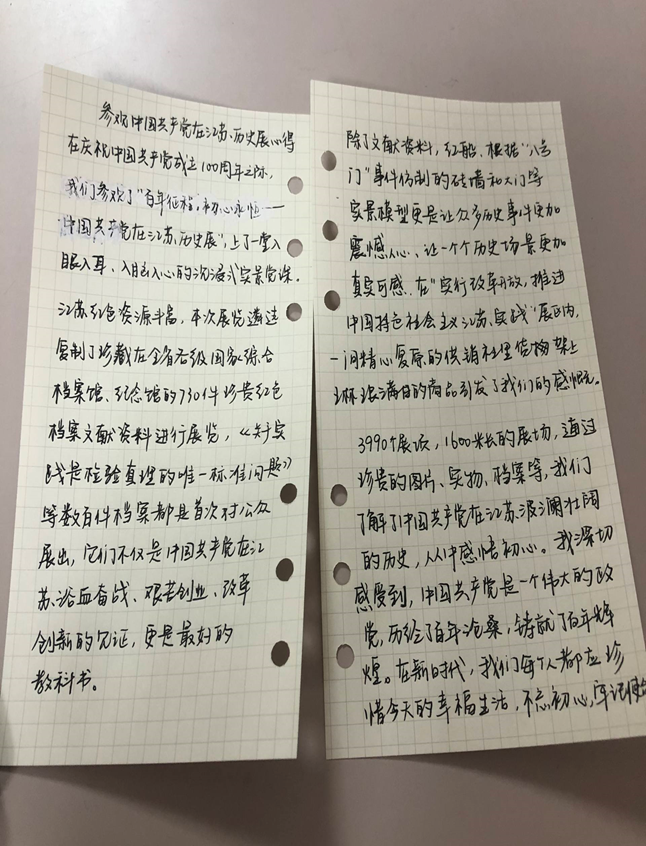 参观中国共产党在江苏历史展心得
在庆祝中国共产党成立100周年之际,
我们参观了"百年征程,初心永恒——
中国共产党在江苏历史展",上了一堂入
眼入耳、入脑入心的沉浸式实景党课.
江苏红色资源丰富,本次展览遴选
复制了珍藏在全省各级国家综合
档案馆、纪念馆的730件珍贵红色
档案文献资料进行展览,《关于实
践是检验真理的唯一标准问题》
等数百件档案都是首次对公众
展出,它们不仅是中国共产党在江
苏浴血奋战、艰苦创业、改革
创新的见证,更是最好的
教科书。
除了文献资料,红船、根据"八号
门"事件仿制的砖墙和大门等
实景模型更是让众多历史事件更加
震憾人心、让一个个历史场景更加
真实可感.在"实行改革开放,推进
中国特色社会主义江苏实践"展区内,
一间精心复原的供销社里货物架上
琳琅满目的商品引发了我们的感慨.
3990个展项,1600米长的展场,通过
珍贵的图片、实物、档案等,我们
了解了中国共产党在江苏波澜壮阔
的历史,从中感悟初心。我深切
感受到,中国共产党是一个伟大的政
党,历经了百年沧桑,铸就了百年辉
煌。在新时代,我们每个人都应珍
惜今天的幸福生活,不忘初心,牢记使命